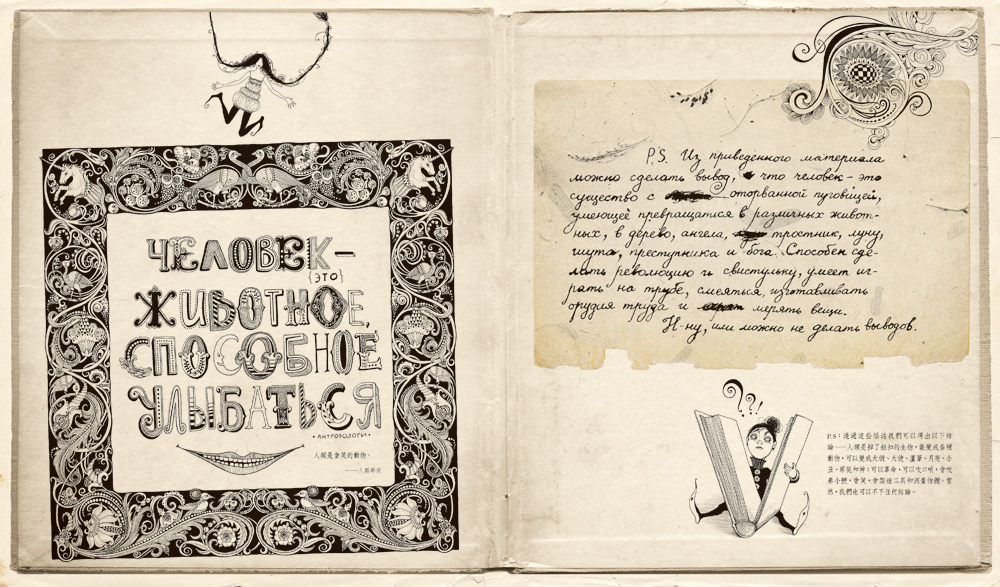 ЧЕЛОВЕК –
{ЭТО}
ЖИВОТНОЕ,
СПОСОБНОЕ
УЛЫБАТЬСЯ
• АНТРОПОЛОГИ •
人類是會笑的動物。
——人類學家
P.S. Из приведенного материала
можно сделать вывод, что человек – это
существо с оторванной пуговицей,
умеющее превращаться в различных живот-
ных, в дерево, ангела, тростник, луну,
шута, преступника и бога. Способен сде-
лать революцию и свистульку, умеет иг-
рать на трубе, смеяться, изготавливать
орудия труда и мерять вещи.
Н-ну, или можно не делать выводов.
??!
P.S：透過這些描述我們可以得出以下結
論——人類是掉了鈕扣的生物，能變成各種
動物，可以變成大樹、天使、蘆葦、月亮、小
丑、罪犯和神；可以革命，可以吹口哨，會吹
奏小號，會笑，會製造工具和測量物體。當
然，我們也可以不下任何結論。